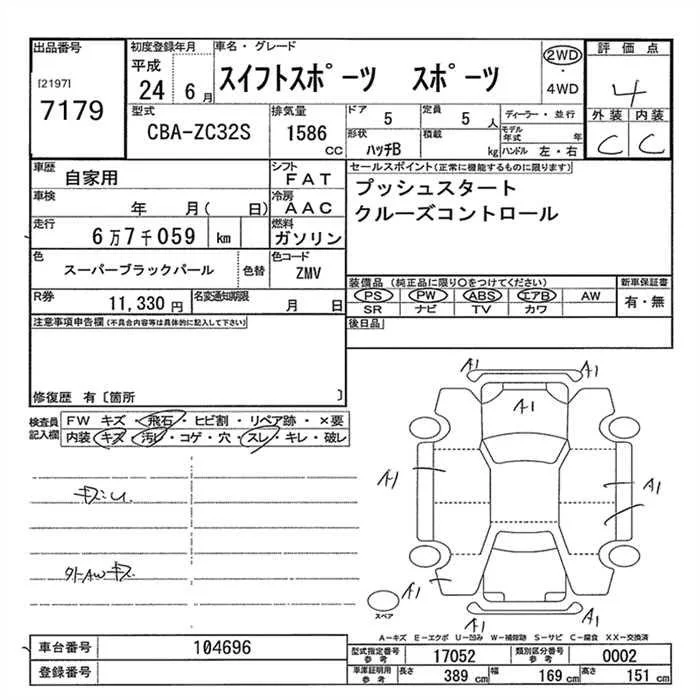 出品番号
[2197]
7179
初度登録年月
平成
24 6月
車名・グレード
スイフトスポーツ スポーツ
2WD
・
4WD
評価点
4
外装 内装
C C
型式
CBA-ZC32S
排気量
1586
CC
ドア
5
定員
5 人
形状
ハッチB
積載
kg
ディーラー・並行
モデル年式 年
ハンドル 左・右
車歴
自家用
シフト
FAT
車検
年 月( 日)
冷房
AAC
走行
6万7千059 km
燃料
ガソリン
色
スーパーブラックパール
色替
色コード
ZMV
R券
11,330 円
名変通知期限
月 日
セールスポイント(正常に機能するものに限ります)
プッシュスタート
クルーズコントロール
装備品 (純正品に限り○をつけてください)
PS PW ABS エアB AW
SR ナビ TV カワ
新車保証書
有・無
後日品
注意事項申告欄(不具合内容等は具体的に記入して下さい)
修復歴 有〔箇所 〕
検査員
記入欄
FW キズ・飛石・ヒビ割・リペア跡・×要
内装 キズ・汚レ・コゲ・穴・スレ・キレ・破レ
キズ
外AWキズ
A1
A1
A1
A1
A1
A1
A1
A1
スペア
A−キズ E−エクボ U−凹み W−補修跡 S−サビ C−腐食 XX−交換済
車台番号
104696
登録番号
型式指定番号
参考
17052
類別区分番号
参考
0002
車庫証明用
参考
長さ
389 cm
幅
169 cm
高さ
151 cm